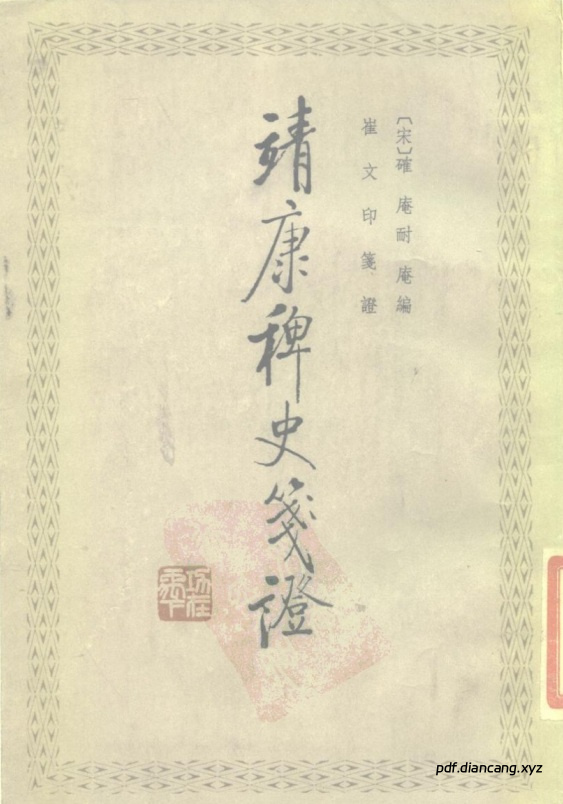 〔宋〕確庵耐庵編
崔文印箋證
靖康稗史箋證
pdf.diancang.xyz